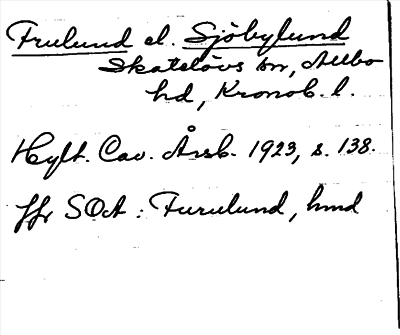 Frulund el. Sjöbylund
Skatelövs sn, Allbo
hd, Kronob. l.
Hylt. Cav. Årsb. 1923, s. 138.
Jfr SOA: Furulund, hmd